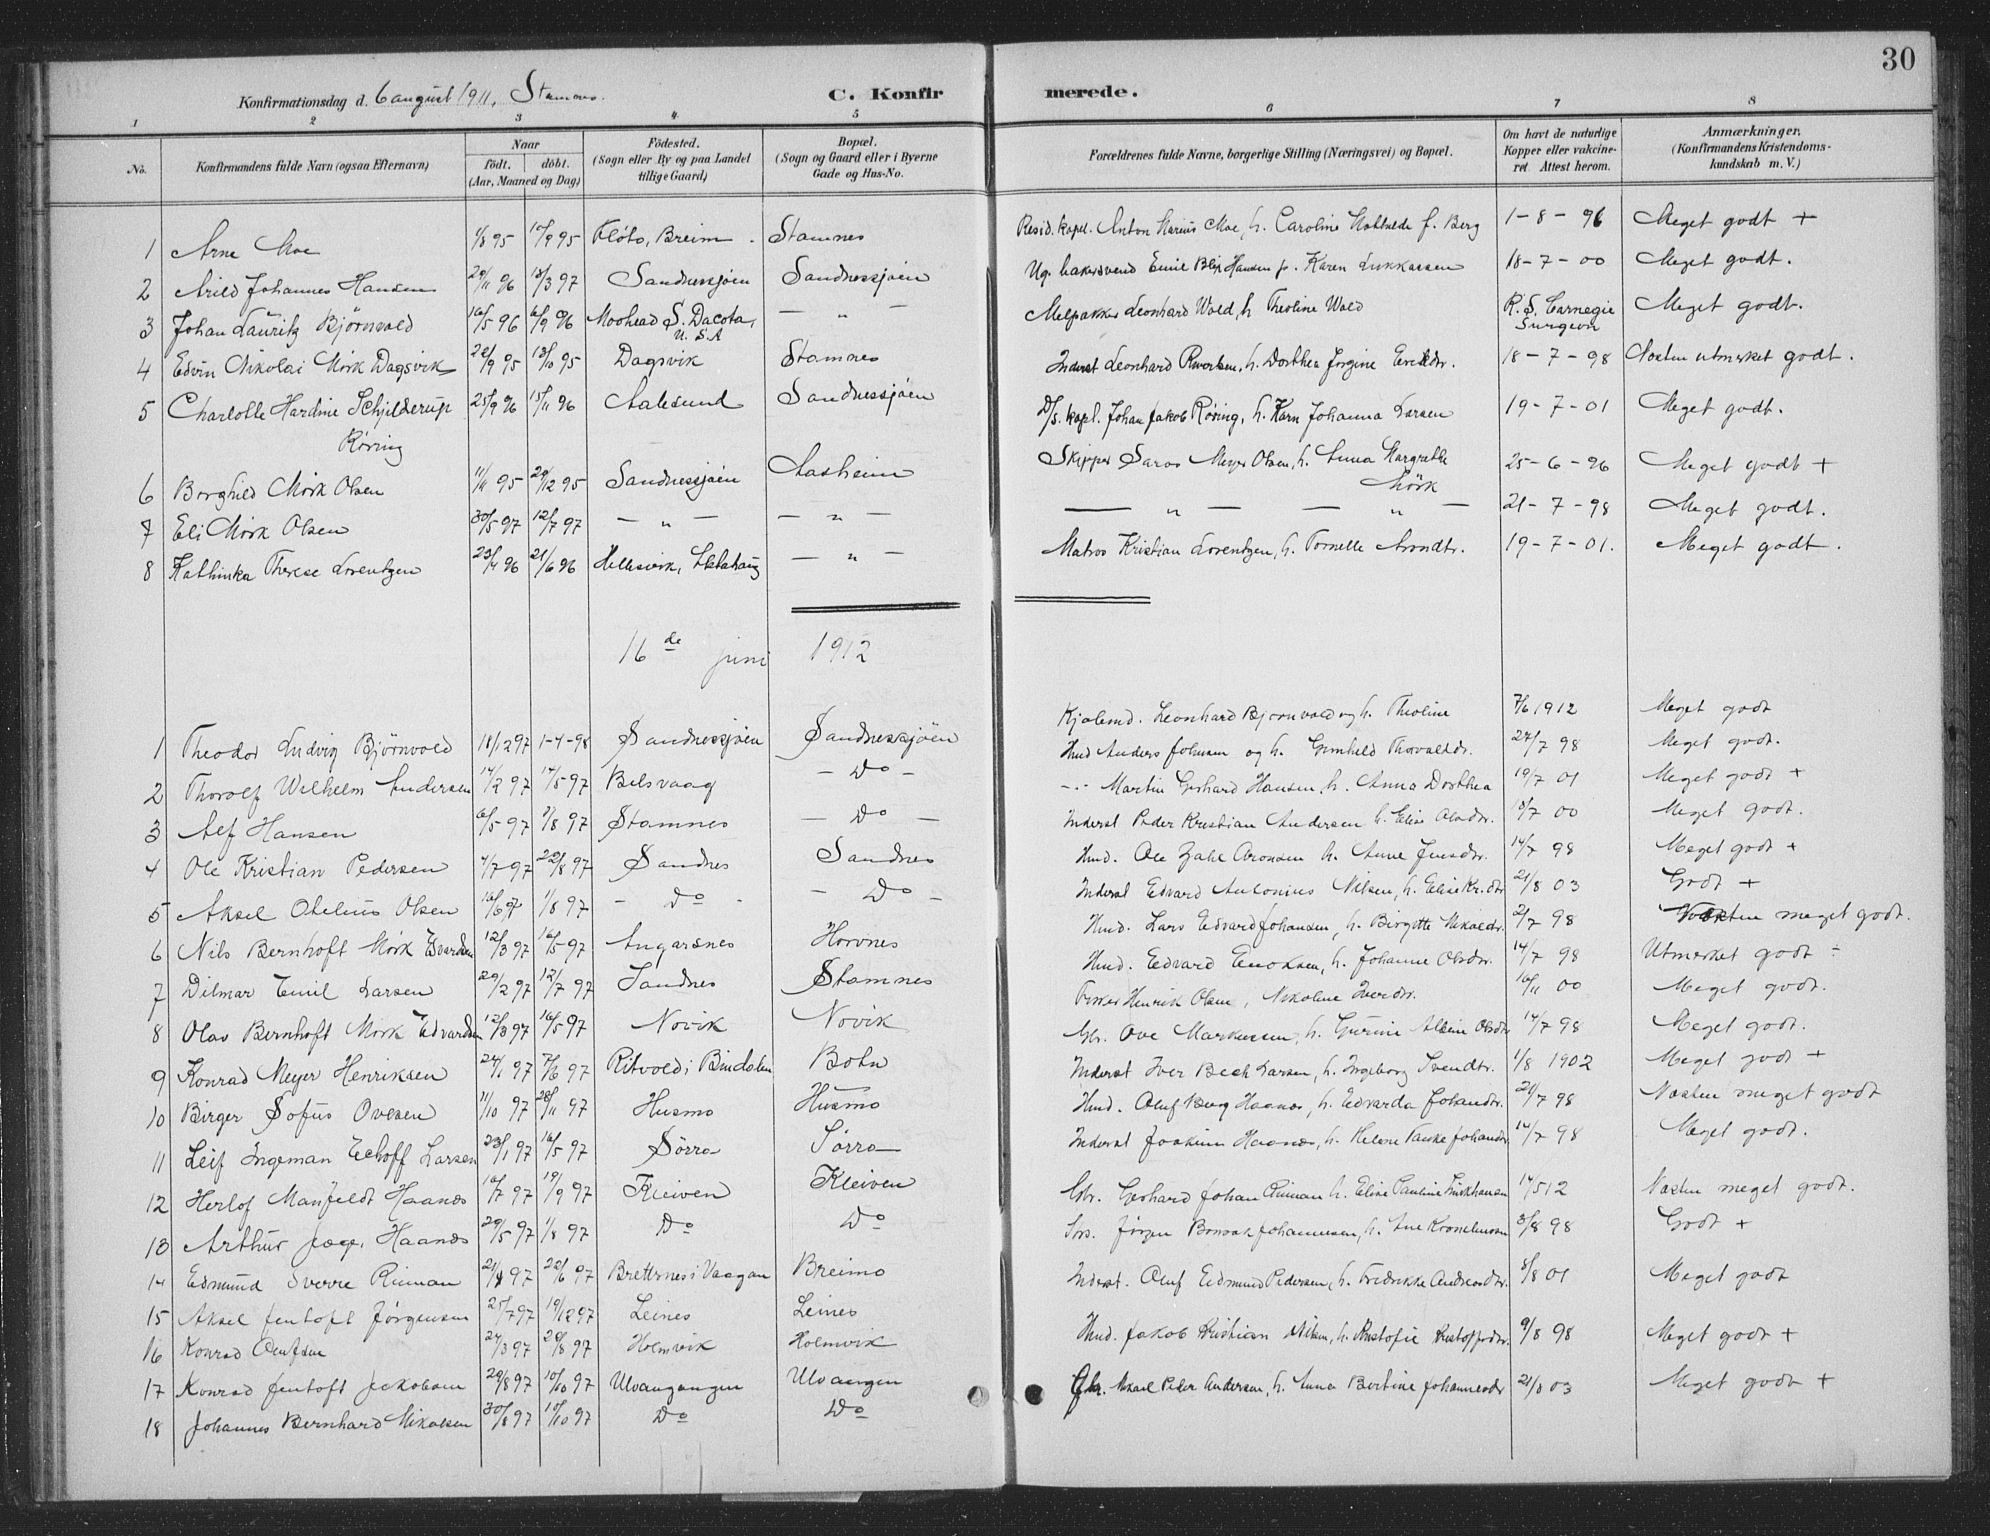 30
Konfirmationsdag d. 6 august 1911, Stamnes. C. Konfirmerede.
1 2 3 4 5 6 7 8
No. Konfirmandens fulde Navn (ogsaa Efternavn) Naar født. døbt. (Aar, Maaned og Dag) Fødested. (Sogn eller By og paa Landet tillige Gaard) Bopæl. (Sogn og Gaard eller i Byerne Gade og Hus-No. Forældrenes fulde Navne, borgerlige Stilling (Næringsvei) og Bopæl. Om havt de naturlige Kopper eller vakcineret Attest herom. Anmærkninger. (Konfirmandens Kristendomskundskab m. V.)
1 Arne Moe 1/8 95 95 Breim Stamnes Resid. kapel. Anton Marius Moe, h. Caroline Mathilde f. Berg 1-8-96 Meget godt +
2 Arild Johannes Hansen 29/11 96 18/3 97 Sandnessjøen Sandnessjøen Ug. bakersvend Emil Hansen p. Karen Lukkassen 18-7-00 Meget godt.
3 Johan Lauritz Bjørnvold 16/5 96 6/9 96 Moohead S. Dacota, U.S.A — " — Leonhard Wold, h. Theoline Wold R. S. Carnegie Surgeon Meget godt.
4 Edvin Nikolai Mørk Dagsvik 22/9 95 13/10 95 Dagsvik Stamnes Inderst Leonhard h. Dorthea Jørgine 18-7-98 Næsten utmerket godt.
5 Charlotte Hardine Schjilderup Røring 25/9 96 15/11 96 Aalesund Sandnessjøen D/s. kapt. Johan Jakob Røring, h. Karn Johanna Larsen 19-7-01 Meget godt.
6 Borghild Mørk Olsen 11/11 95 29/12 95 Sandnessjøen Aasheim Skipper Meyer Olsen, h. Anna Margrethe Mörk 25-6-96 Meget godt +
7 Eli Mörk Olsen 30/5 97 12/7 97 — " — — " — — " — — " — 21-7-98 Meget godt.
8 Kathinka Therese Lorentzen 23/4 96 21/6 96 Hellesvik, — " — Matros Kristian Lorentzen, h. 19-7-01. Meget godt.
16de juni 1912
1 Theodor Ludvig Bjørnvold 18/12 97 1-4-98 Sandnessjøen Sandnessjøen Leonhard Bjørnvold og h. Theoline 7/6 1912 Meget godt
2 Thorolf Wilhelm Andersen 14/2 97 14/5 97 Belsvaag — Do — Hmd Anders Johnsen og h. Gunhild Thorvaldsdr. 27/7 98 Meget godt.
3 Alf Hansen 6/5 97 1/8 97 Stamnes — Do — -"- Martin Gerhard Hansen, h. Anna Dorthea 19/7 01 Meget godt +
4 Ole Kristian Pedersen 4/7 97 22/8 97 Sandnes Sandnes Inderst Peder Kristian Andersen h. Elise Olsdr. 18/7 00 Meget godt.
5 Aksel Olsen 16/6 97 1/8 97 - Do - - Do - Hmd. Ole Zahl Aronsen h. Anne Jensdr. 14/7 98 Meget godt +
6 Nils Bernhoft Mörk Edvardsen 12/3 97 16/5 97 Angarsnes Horvnes Inderst Edvard Antonius Nilsen, h. Elise Kr.dtr 21/8 03 Godt +
7 Dilmar Emil Larsen 20/2 97 12/7 97 Sandnes Stamnes Hmd. Lars Edvard Johansen, h. Birgitte Nikolaidr. 2/7 98 Næsten meget godt.
8 Olav Bernhoft Mörk Edvardsen 12/3 97 16/5 97 Novik Novik Hmd. Edvard Enoksen, h. Johanne Olsdr. 14/7 98 Utmerket godt
9 Konrad Meyer Henriksen 24/1 97 7/6 97 Ritvold i Bindalen Botn Fisker Henrik Olsen, Nikoline Iversdr. 16/11 00 Meget godt.
10 Birger Sofus Ovesen 11/10 97 28/11 97 Husmo Husmo Gbr. Ove Markussen, h. Gurine Olsdtr 14/7 98 Meget godt.
11 Leif Ingeman Echoff Larsen 23/1 97 16/5 97 Sørra Sørra Inderst Iver Bech Larsen, h. Ingeborg Svendtr. 1/8 1902 Meget godt +
12 Herlof Manfeldt Haanes 16/7 97 19/9 97 Kleiven Kleiven Hmd. Oluf Berg Haanes, h. Edvarda Johansdr. 21/7 98 Næsten meget godt
13 Arthur Haanes 29/5 97 1/8 97 Do Do Inderst Joakim Haanes, h. Helene Johansdr 14/7 98 Meget godt.
14 Edmund Sverre Riiman 97 22/6 97 Brettesnes i Vaagan Breimo Gbr. Gerhard Johan Riiman h. Elise Pauline 14/5 12 Næsten meget godt.
15 Aksel Jentoft Jørgensen 25/7 97 19/12 97 Leines Leines Jørgen Johannesen, h. 3/8 98 Godt +
16 Konrad Olufsen 24/3 97 29/8 97 Holmvik Holmvik Inderst. Oluf Edmund Pedersen, h. Fredrikke Andreasdr. 8/8 01 Meget godt
17 Konrad Jentoft Jakobsen 29/8 97 10/10 97 Ulvangangen Ulvangen Hmd. Jakob Kristian Nilsen, h. Kristofferdr. 9/8 98 Meget godt +
18 Johannes Bernhard Mikalsen 30/8 97 10/10 97 Do Do Gbr. Mikael Peder Andersen, h. Anna Bertine Johannesdr 21/8 03 Meget godt +